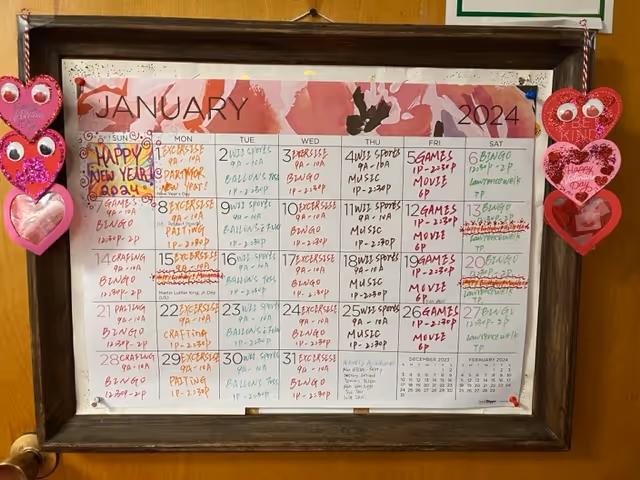 JANUARY
2024
SUN MON TUE WED THU FRI SAT
HAPPY
NEW YEAR!
2024
1 EXCERSISE
9A - 10A
PARTY FOR
NEW YEAR!
New Year's Day
2 WII SPORTS
9A - 10A
BALLOON TOSS
1P - 2:30P
3 EXCERSISE
9A - 10A
BINGO
1P - 2:30P
4 WII SPORTS
9A - 10A
MUSIC
1P - 2:30P
5 GAMES
1P - 2:30P
MOVIE
6P
6 BINGO
12:30P - 2P
Lawrence Welk
7P
7 GAMES
9A - 10A
BINGO
12:30P - 2P
8 EXCERSISE
9A - 10A
PAITING
1P - 2:30P
9 WII SPORTS
9A - 10A
BALLOON TOSS
1P - 2:30P
10 EXCERSISE
9A - 10A
BINGO
1P - 2:30P
11 WII SPORTS
9A - 10A
MUSIC
1P - 2:30P
12 GAMES
1P - 2:30P
MOVIE
6P
13 BINGO
Lawrence Welk
7P
14 CRAFTING
9A - 10A
BINGO
12:30P - 2P
15 EXCERSISE
9A - 10A
Martin Luther King, Jr. Day
(US)
16 WII SPORTS
9A - 10A
BALLOON TOSS
1P - 2:30P
17 EXCERSISE
9A - 10A
BINGO
1P - 2:30P
18 WII SPORTS
9A - 10A
MUSIC
1P - 2:30P
19 GAMES
1P - 2:30P
MOVIE
6P
20 BINGO
12:30P - 2P
Lawrence Welk
7P
21 PAITING
9A - 10A
BINGO
12:30P - 2P
22 EXCERSISE
9A - 10A
CRAFTING
1P - 2:30P
23 WII SPORTS
9A - 10A
BALLOON TOSS
1P - 2:30P
24 EXCERSISE
9A - 10A
BINGO
1P - 2:30P
25 WII SPORTS
9A - 10A
MUSIC
1P - 2:30P
26 GAMES
1P - 2:30P
MOVIE
6P
27 BINGO
12:30P - 2P
Lawrence Welk
7P
28 CRAFTING
9A - 10A
BINGO
12:30P - 2P
29 EXCERSISE
9A - 10A
PAITING
1P - 2:30P
30 WII SPORTS
9A - 10A
BALLOON TOSS
1P - 2:30P
31 EXCERSISE
9A - 10A
BINGO
1P - 2:30P
DECEMBER 2023
FEBRUARY 2024
KIND
HAPPY
DAY